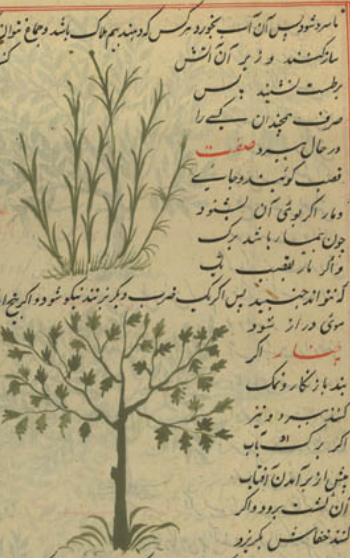 تا سرد شود پس آن آب بخورد و هر کس که دهند هم هلاک باشد و جماع نتوان
سازکنند و زیر آن آتش
بر طشت نشیند پس
صرف همچندان کسی را
در حال بمیرد صفت
قصب کوبند و جایی
و مار اگر بوی آن بشنود
چون بیمار باشد برک
و اگر مار بقصب
که نتواند جنبید پس اگر یک ضرب دیگر بزنند نیکو شود و اگر بیخ
موی دراز شود
چنار اگر
بند باز نکار و نمک
کنند بمیرد و نیز
اگر برک باب
پیش از برآمدن آفتاب
آن کشت برود و اگر
کنند خفاش بگریزد